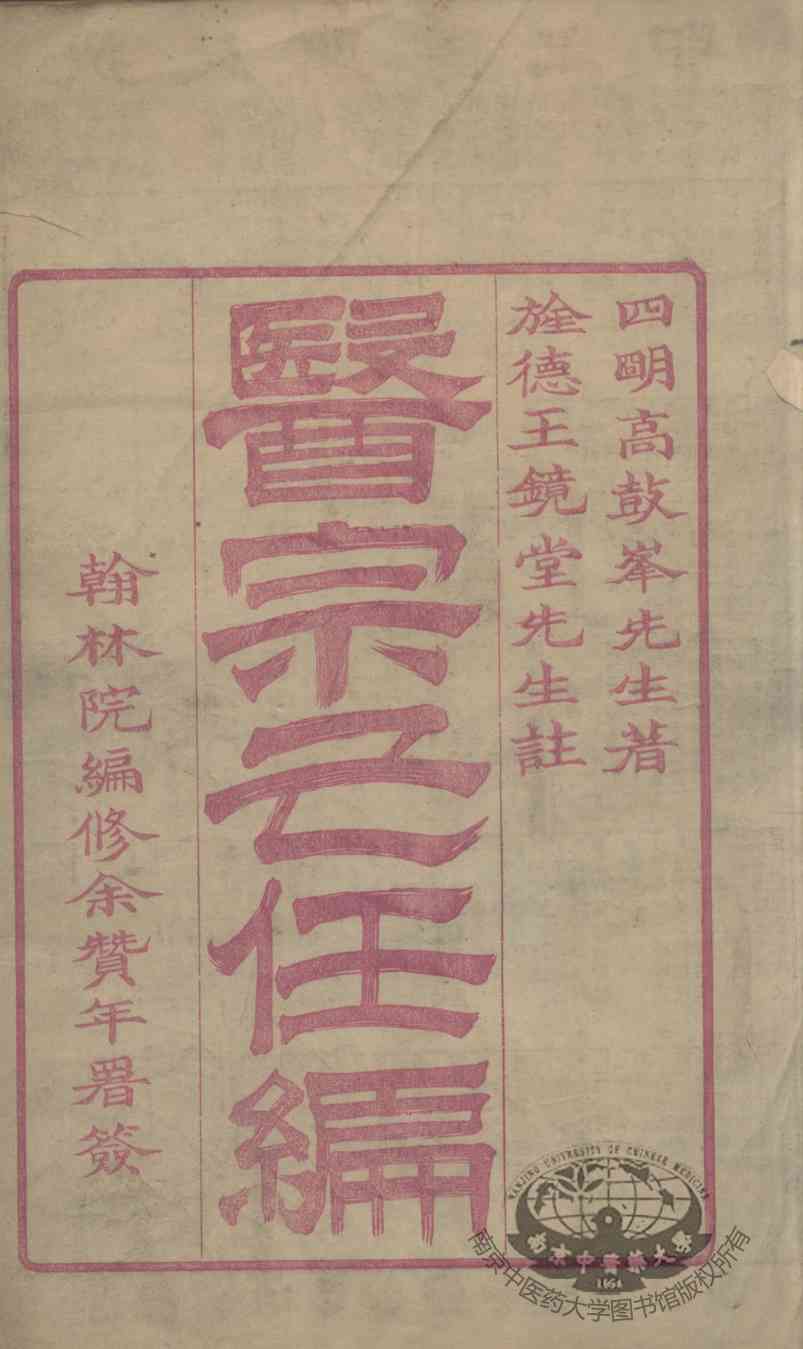 四明高鼓峯先生著
旌德王鏡堂先生註
醫宗己任編
翰林院編修余贊年署簽
NANJING UNIVERSITY OF CHINESE MEDICINE
南京中醫藥大學
1954
南京中医药大学图书馆版权所有